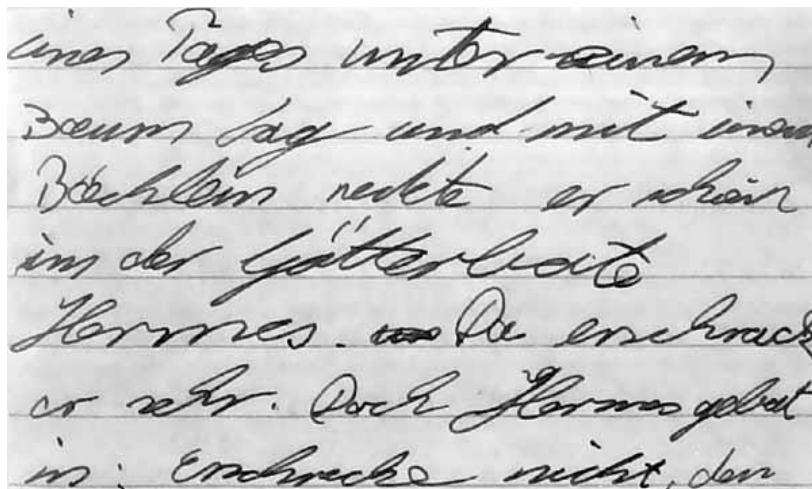 eines Tages unter einem
Baum lag und mit einem
Böcklein neckte er schein
im der Götterbote
Hermes. Da erschrack
er sehr. Doch Hermes gebot
im: Erschrecke nicht, den